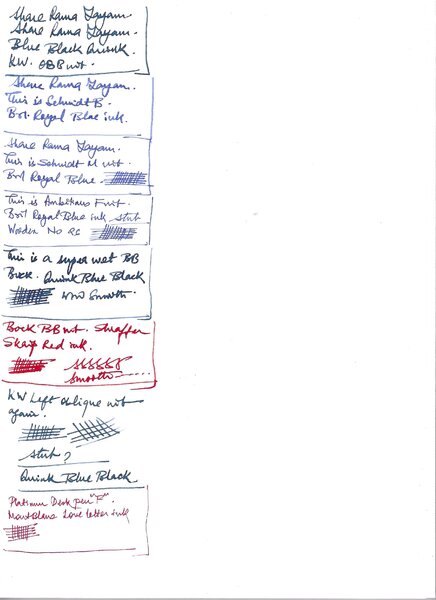 Shree Rama Jayam.
Shree Rama Jayam.
Blue Black Quink.
KW. OBB nit.
Shree Rama Jayam.
This is Schmidt B.
Bril Royal Blue ink.
Shree Rama Jayam.
This is Schmidt M nit.
Bril Royal Blue.
This is Ambitious F nit.
Bril Royal Blue ink stub
This is a super wet BB
Bock. Quink Blue Black
Smooth.
Bock BB nit. Sheaffer
Skrip Red ink.
Smooth
KW Left oblique nit
again.
stub?
Quink Blue Black.
Platinum Desk pen "F".
MontBlanc Love letter ink